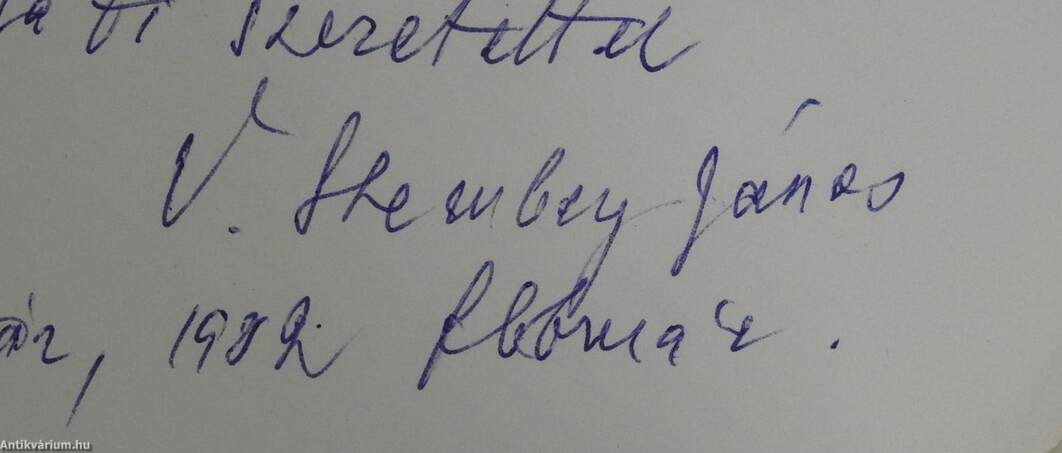 szeretettel
V. Szemberg János
1982 február.
Antikvárium.hu